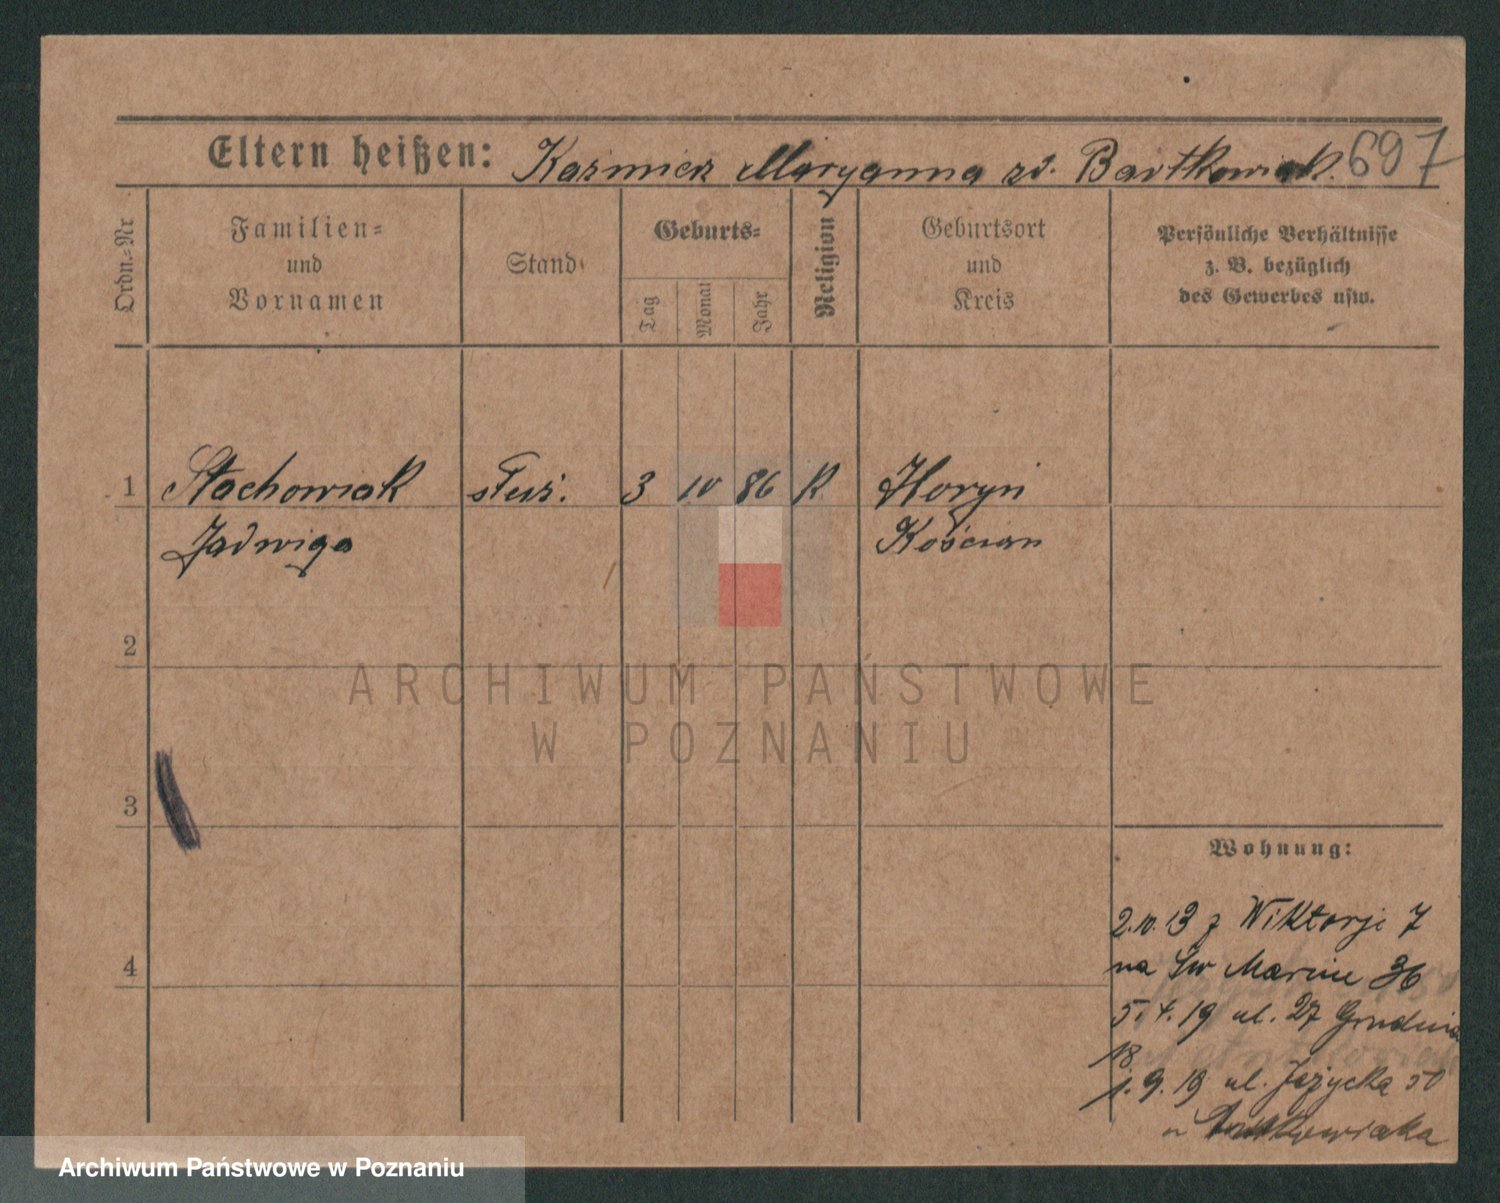 697
Eltern heißen: Kazmierz Maryanna zd. Bartkowiak
Ordn.-Nr
Familien=
und
Vornamen
Stand
Geburts=
Tag
Monat
Jahr
Religion
Geburtsort
und
Kreis
Persönliche Verhältnisse
z. B. bezüglich
des Gewerbes usw.
1 Stachowiak służ. 3 10 86 K Horyń
Jadwiga Kościan
2
3
4
Wohnung:
2.10.13 z Wiktorji 7
na Św Marcin 36
5.4.19 ul. 27 Grudnia
18
1.9.19 ul. Jeżycka 50
u
ARCHIWUM PAŃSTWOWE
W POZNANIU
Archiwum Państwowe w Poznaniu